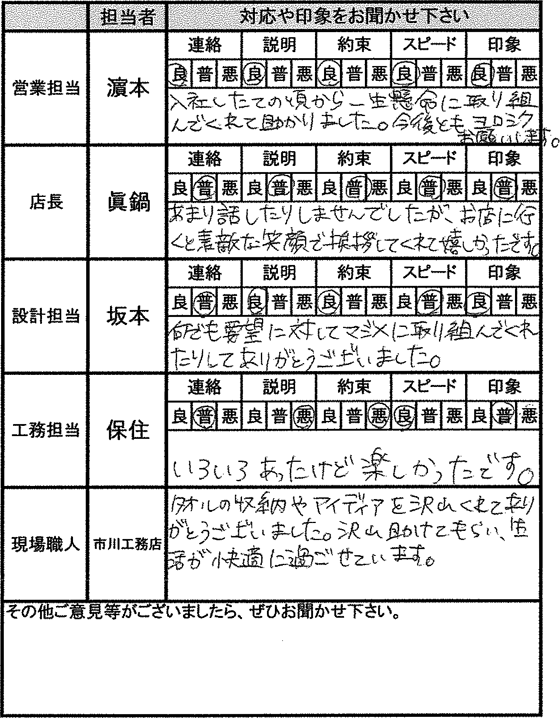 担当者 対応や印象をお聞かせ下さい
営業担当 濵本
連絡 説明 約束 スピード 印象
良 普 悪 良 普 悪 良 普 悪 良 普 悪 良 普 悪
入社したての頃から一生懸命に取り組
んでくれて助かりました。今後ともヨロシク
お願いします。
店長 眞鍋
連絡 説明 約束 スピード 印象
良 普 悪 良 普 悪 良 普 悪 良 普 悪 良 普 悪
あまり話したりしませんでしたが、お店に行
くと素敵な笑顔で挨拶してくれて嬉しかったです。
設計担当 坂本
連絡 説明 約束 スピード 印象
良 普 悪 良 普 悪 良 普 悪 良 普 悪 良 普 悪
何でも要望に対してマジメに取り組んでくれ
たりしてありがとうございました。
工務担当 保住
連絡 説明 約束 スピード 印象
良 普 悪 良 普 悪 良 普 悪 良 普 悪 良 普 悪
いろいろあったけど楽しかったです。
現場職人 市川工務店
タオルの収納やアイディアを沢山くれてあり
がとうございました。沢山助けてもらい、生
活が快適に過ごせています。
その他ご意見等がございましたら、ぜひお聞かせ下さい。